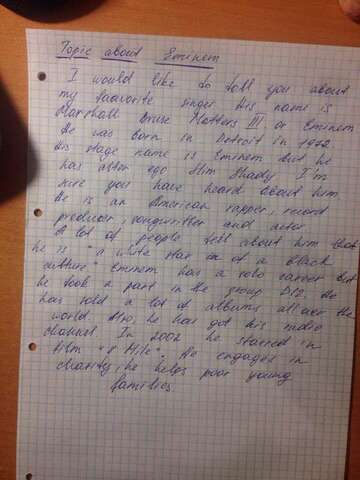 Topic about Eminem
I would like to tell you about
my faavorite singer His name is
Marshall Bruse Matters III or Eminem
He was born in Detroit in 1972
His stage name is Eminem but he
has alter ego Slim Shady I'm
sure you have heard about him
He is an American rapper, record
producer, songwritter and actor
A lot of people tell about him that
he is "a white star in of a black
culture" Eminem has a solo career but
he took a part in the group D12. He
has sold a lot of albums all over the
world Also, he has got his radio
channel In 2002 he starred in
film "8 Mile". He engages in
charity, he helps poor young
families